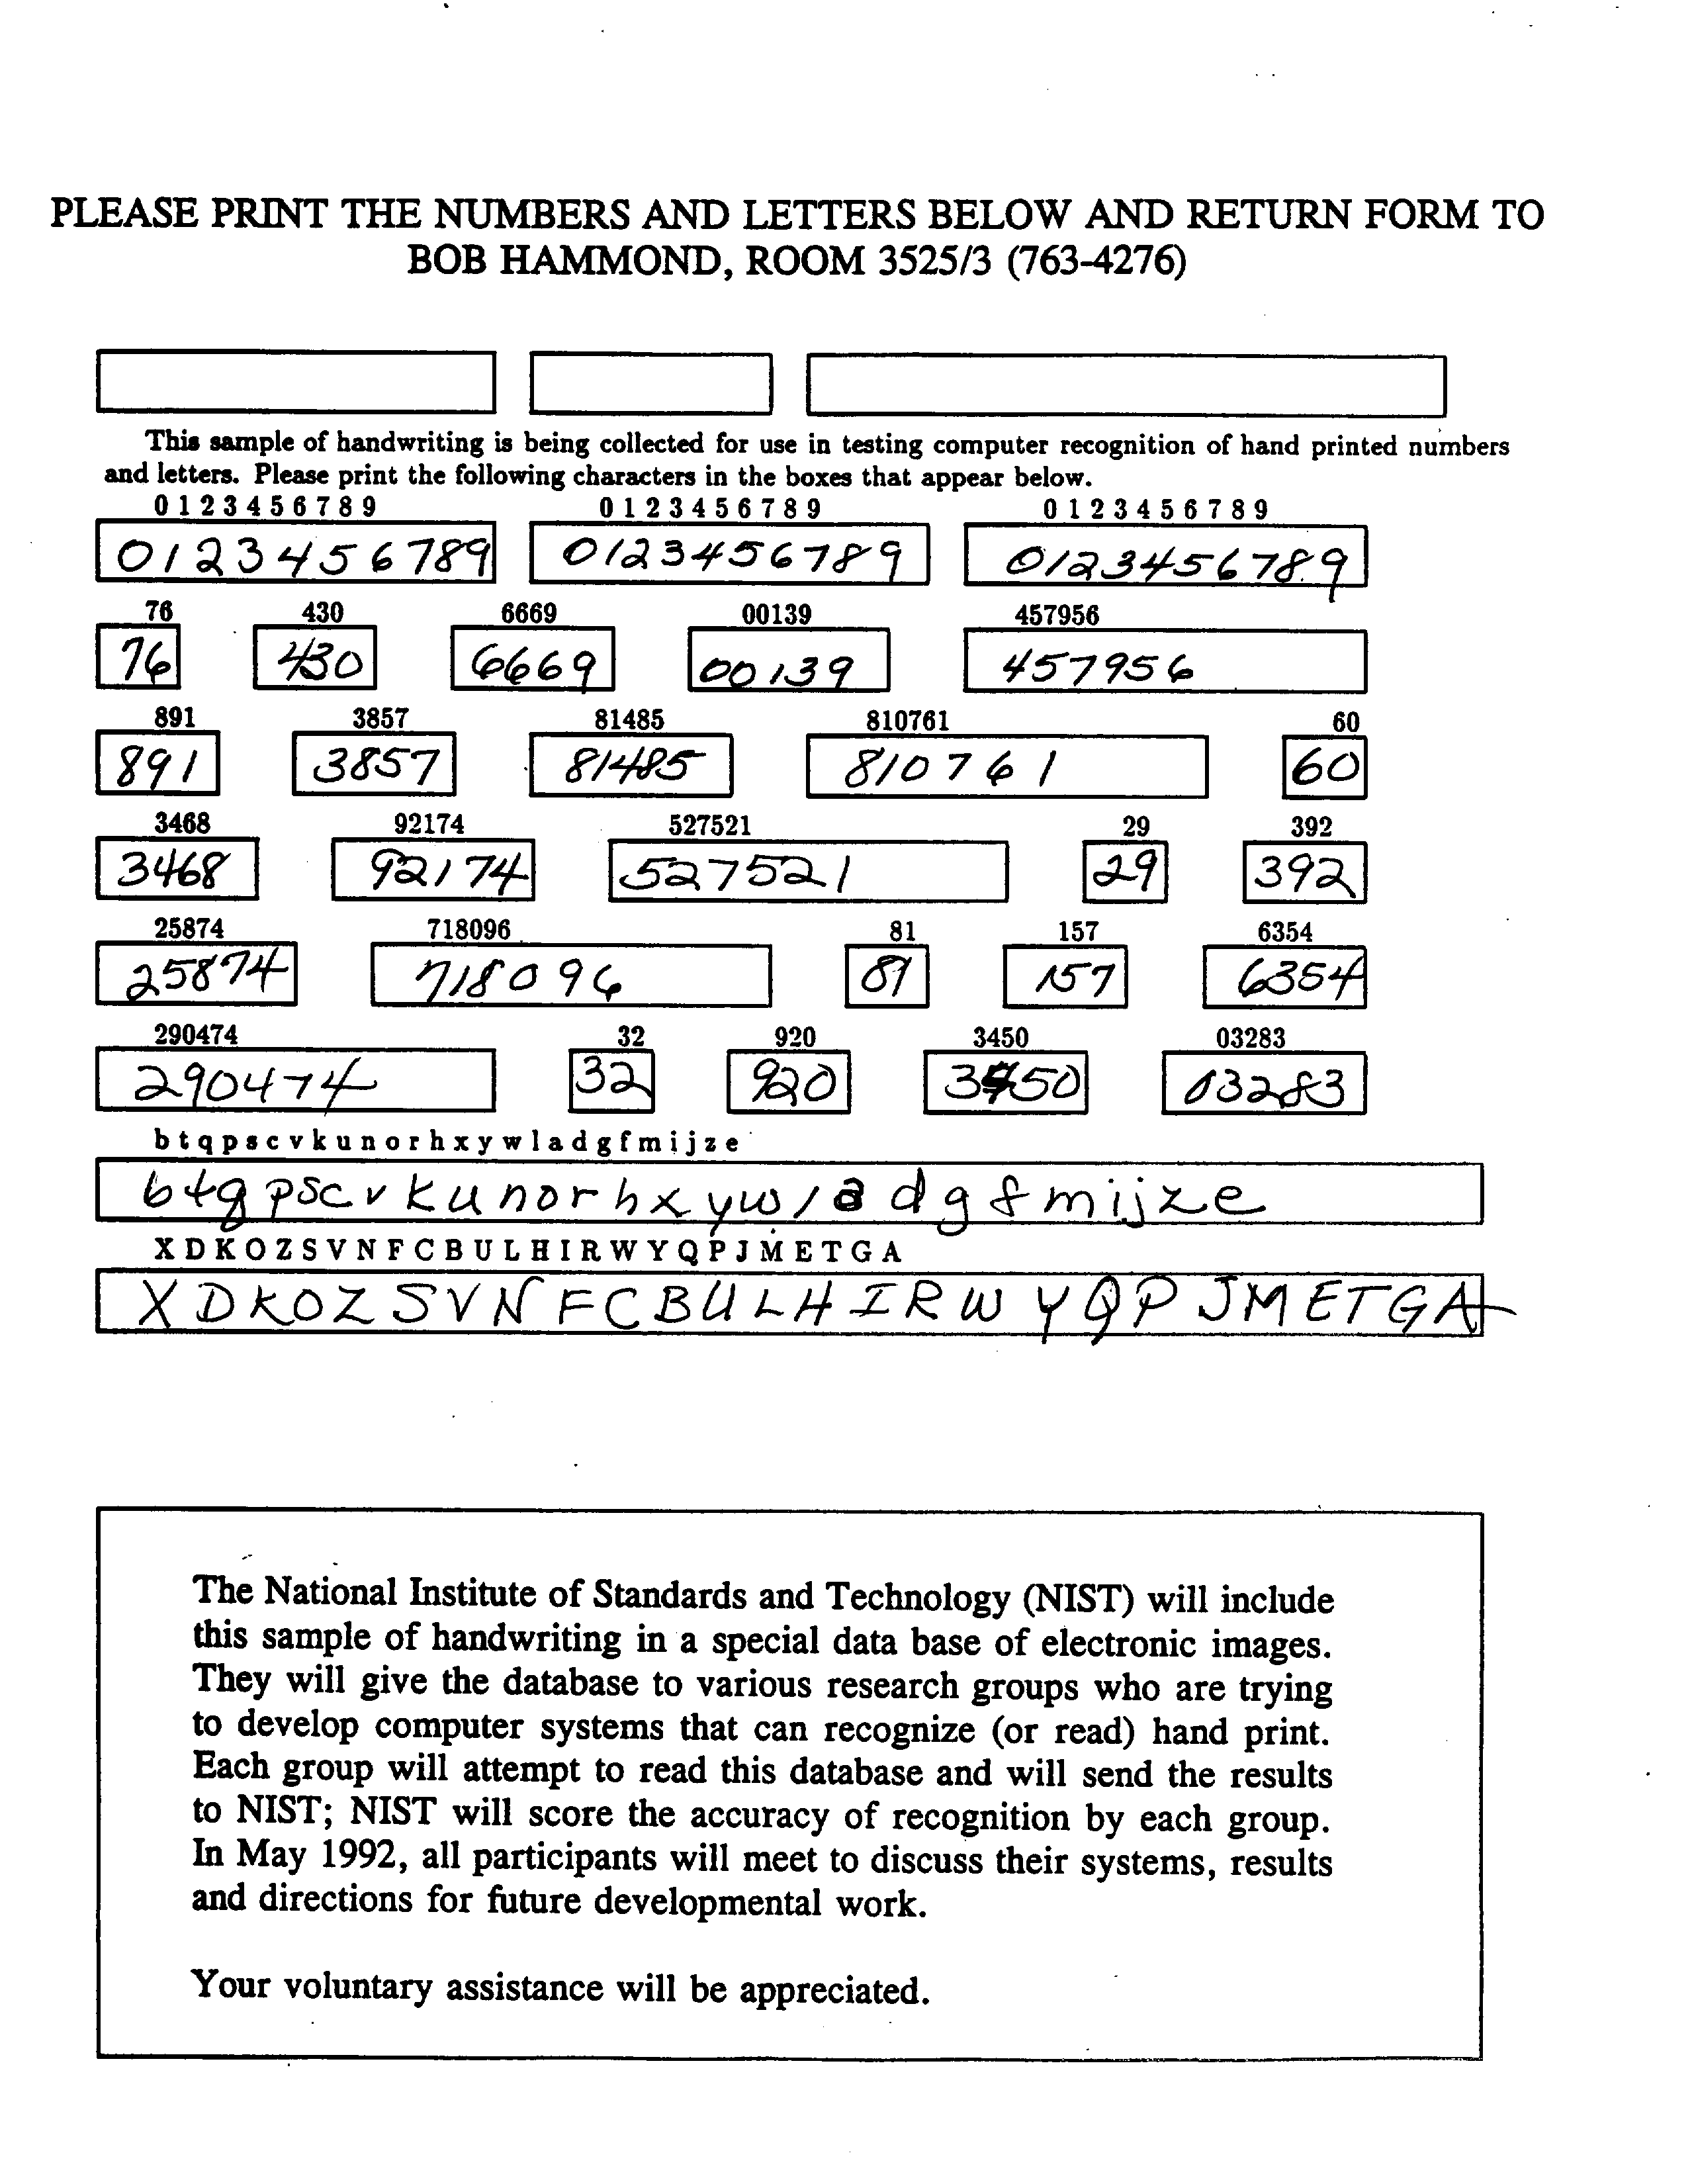 PLEASE PRINT THE NUMBERS AND LETTERS BELOW AND RETURN FORM TO
BOB HAMMOND, ROOM 3525/3 (763-4276)
This sample of handwriting is being collected for use in testing computer recognition of hand printed numbers
and letters. Please print the following characters in the boxes that appear below.
0 1 2 3 4 5 6 7 8 9 0 1 2 3 4 5 6 7 8 9 0 1 2 3 4 5 6 7 8 9
0123456789 0123456789 0123456789
76 430 6669 00139 457956
76 430 6669 00139 457956
891 3857 81485 810761 60
891 3857 81485 810761 60
3468 92174 527521 29 392
3468 92174 527521 29 392
25874 718096 81 157 6354
25874 718096 81 157 6354
290474 32 920 3450 03283
290474 32 920 3450 03283
b t q p s c v k u n o r h x y w l a d g f m i j z e
b t q p s c v k u n o r h x y w l a d g f m i j z e
X D K O Z S V N F C B U L H I R W Y Q P J M E T G A
X D K O Z S V N F C B U L H I R W Y Q P J M E T G A
The National Institute of Standards and Technology (NIST) will include
this sample of handwriting in a special data base of electronic images.
They will give the database to various research groups who are trying
to develop computer systems that can recognize (or read) hand print.
Each group will attempt to read this database and will send the results
to NIST; NIST will score the accuracy of recognition by each group.
In May 1992, all participants will meet to discuss their systems, results
and directions for future developmental work.
Your voluntary assistance will be appreciated.